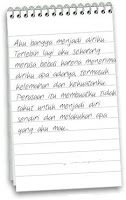 Aku bangga menjadi diriku
Terlebih lagi aku sekarang
merasa bebas karena menerima
diriku apa adanya, termasuk
kelemahan dan kekuatanku
Perasaan itu membuatku tidak
takut untuk menjadi diri
sendiri dan melakukan apa
yang aku mau...